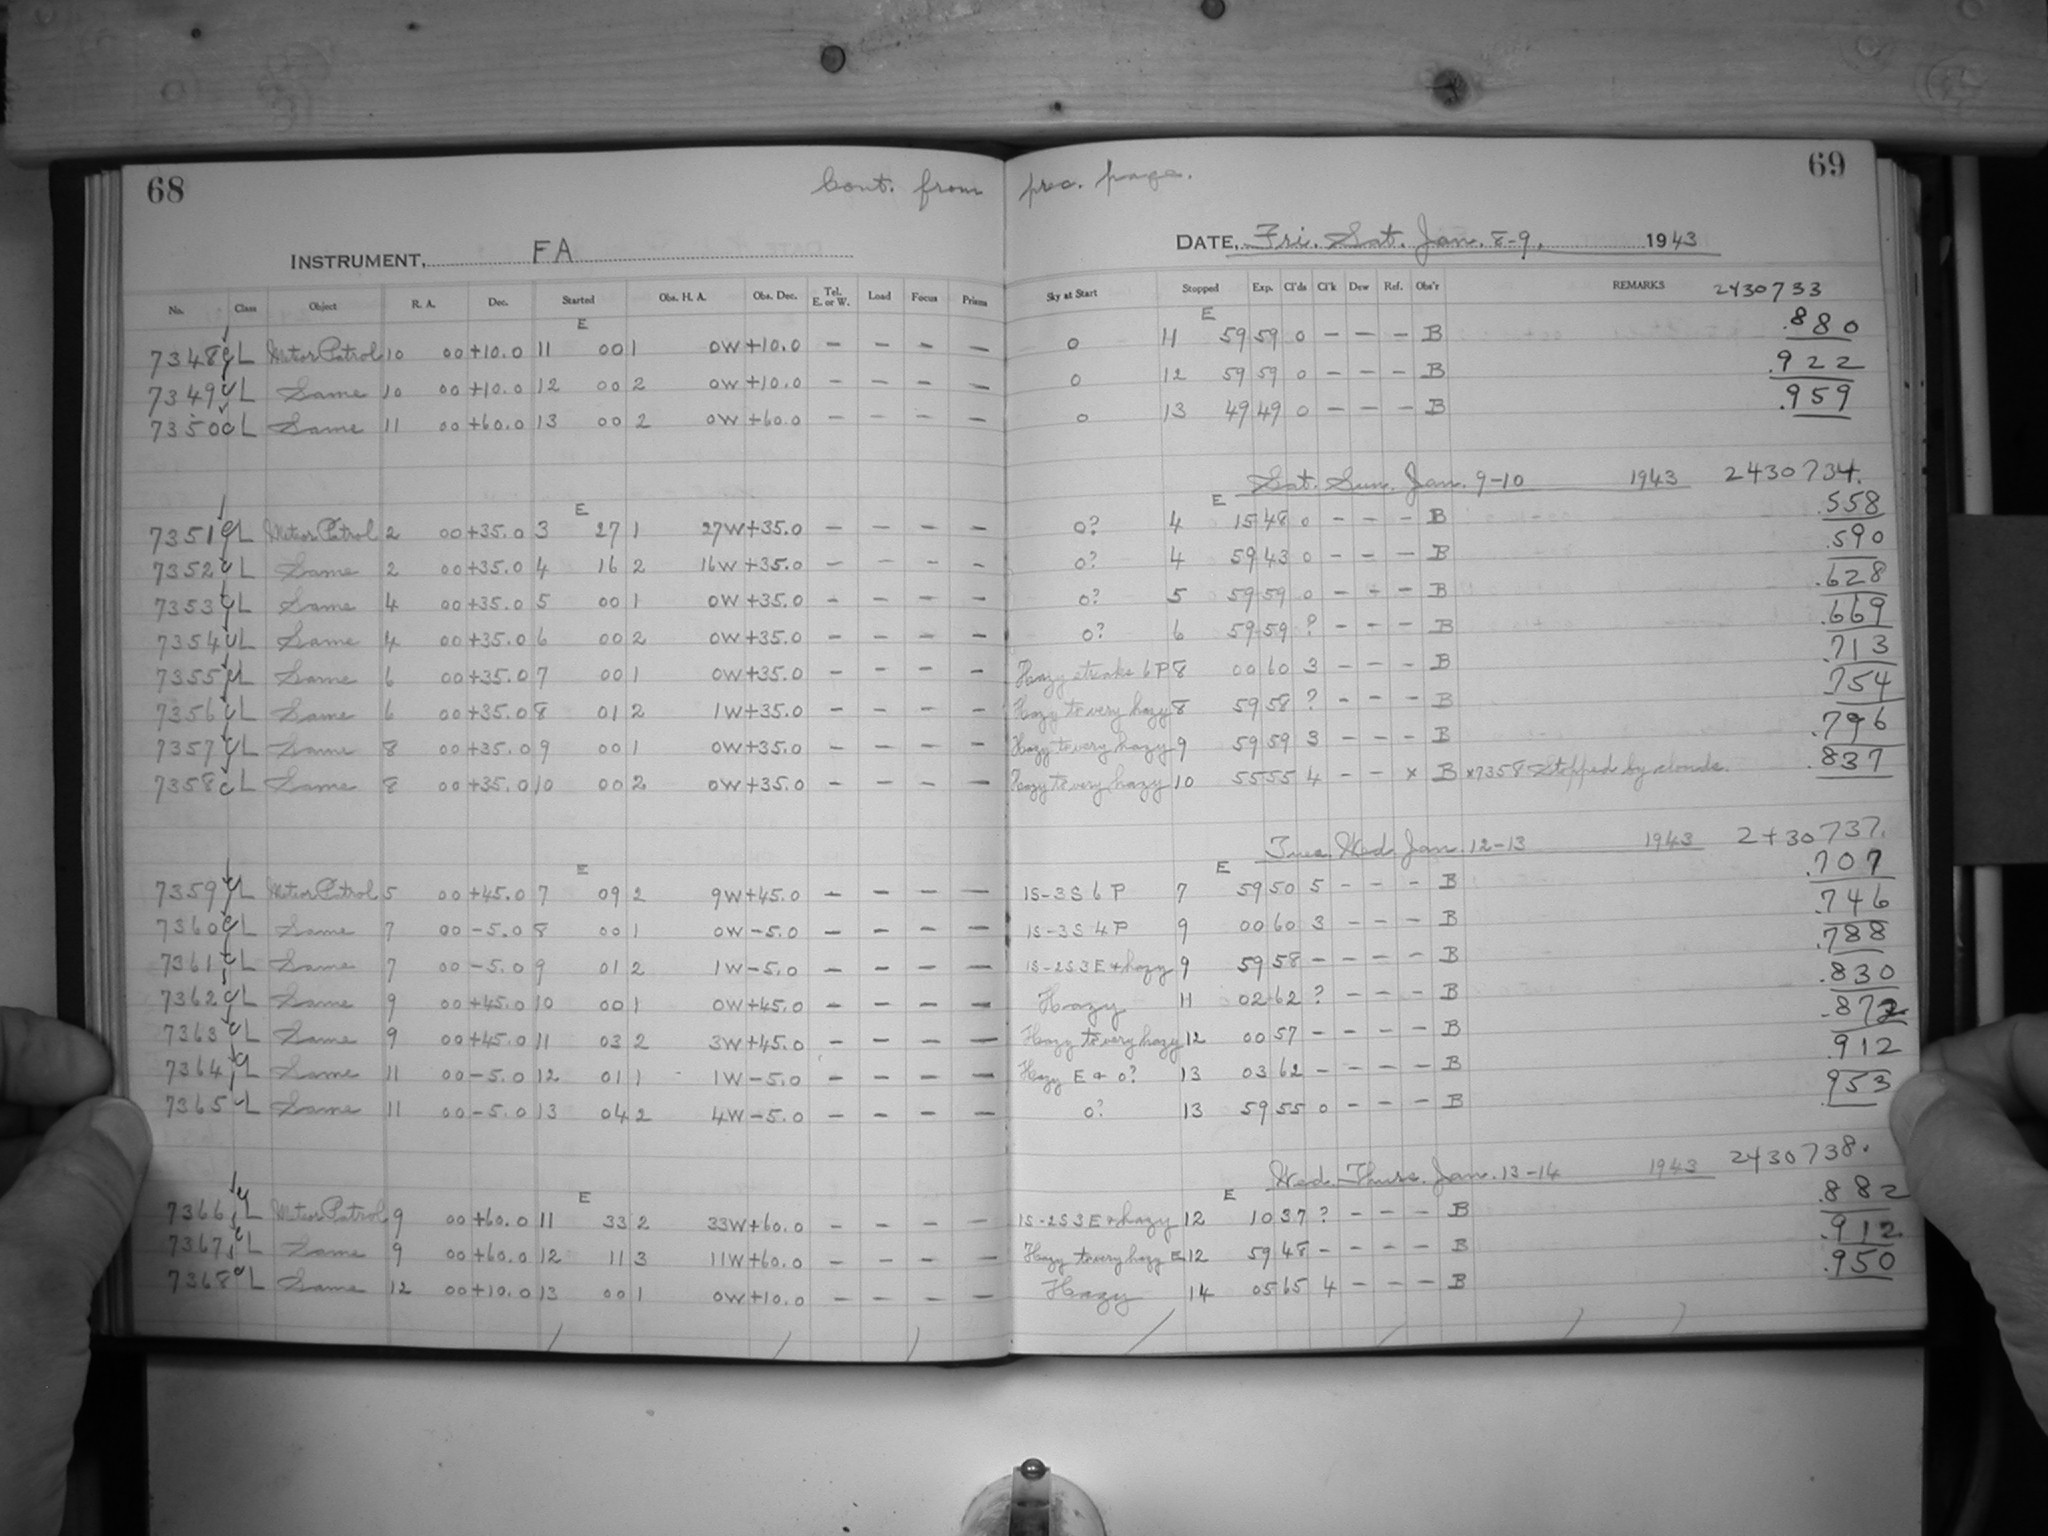 68 Cont. from prec. page. 69
INSTRUMENT, FA DATE, Fri. Sat. Jan. 8-9, 1943
No. Class Object R. A. Dec. Started Obs. H. A. Obs. Dec. Tel. E. or W. Load Focus Prisms Sky at Start Stopped Exp. Cl'ds Cl'k Dew Ref. Obs'r REMARKS 2430733
E E
7348 L Meteor Patrol 10 00 +10.0 11 00 1 0W +10.0 - - - - 0 11 59 59 0 - - - B .880
7349 L Same 10 00 +10.0 12 00 2 0W +10.0 - - - - 0 12 59 59 0 - - - B .922
7350 L Same 11 00 +60.0 13 00 2 0W +60.0 - - - - 0 13 49 49 0 - - - B .959
Sat. Sun. Jan. 9-10 1943 2430734.
E E
7351 L Meteor Patrol 2 00 +35.0 3 27 1 27W +35.0 - - - - 0? 4 15 48 0 - - - B .558
7352 L Same 2 00 +35.0 4 16 2 16W +35.0 - - - - 0? 4 59 43 0 - - - B .590
7353 L Same 4 00 +35.0 5 00 1 0W +35.0 - - - - 0? 5 59 59 0 - - - B .628
7354 L Same 4 00 +35.0 6 00 2 0W +35.0 - - - - 0? 6 59 59 ? - - - B .669
7355 L Same 6 00 +35.0 7 00 1 0W +35.0 - - - Hazy streaks 6P 8 00 60 3 - - - B .713
7356 L Same 6 00 +35.0 8 01 2 1W +35.0 - - - - Hazy to very hazy 8 59 58 ? - - - B .754
7357 L Same 8 00 +35.0 9 00 1 0W +35.0 - - - - Hazy to very hazy 9 59 59 3 - - - B .796
7358 L Same 8 00 +35.0 10 00 2 0W +35.0 - - - - Hazy to very hazy 10 55 55 4 - - x B x7358 Stopped by clouds. .837
Tues. Wed. Jan. 12-13 1943 2430737.
E E
7359 L Meteor Patrol 5 00 +45.0 7 09 2 9W +45.0 - - - - 1S-3S 6P 7 59 50 5 - - - B .707
7360 L Same 7 00 -5.0 8 00 1 0W -5.0 - - - - 1S-3S 4P 9 00 60 3 - - - B .746
7361 L Same 7 00 -5.0 9 01 2 1W -5.0 - - - - 1S-2S 3E + hazy 9 59 58 - - - - B .788
7362 L Same 9 00 +45.0 10 00 1 0W +45.0 - - - - Hazy 11 02 62 ? - - - B .830
7363 L Same 9 00 +45.0 11 03 2 3W +45.0 - - - - Hazy to very hazy 12 00 57 - - - - B .872
7364 L Same 11 00 -5.0 12 01 1 1W -5.0 - - - - Hazy E + 0? 13 03 62 - - - - B .912
7365 L Same 11 00 -5.0 13 04 2 4W -5.0 - - - - 0? 13 59 55 0 - - - B .953
Wed. Thurs. Jan. 13-14 1943 2430738.
E E
7366 L Meteor Patrol 9 00 +60.0 11 33 2 33W +60.0 - - - - 1S-2S 3E + hazy 12 10 37 ? - - - B .882
7367 L Same 9 00 +60.0 12 11 3 11W +60.0 - - - - Hazy to very hazy E 12 59 48 - - - - B .912
7368 L Same 12 00 +10.0 13 00 1 0W +10.0 - - - - Hazy 14 05 65 4 - - - B .950